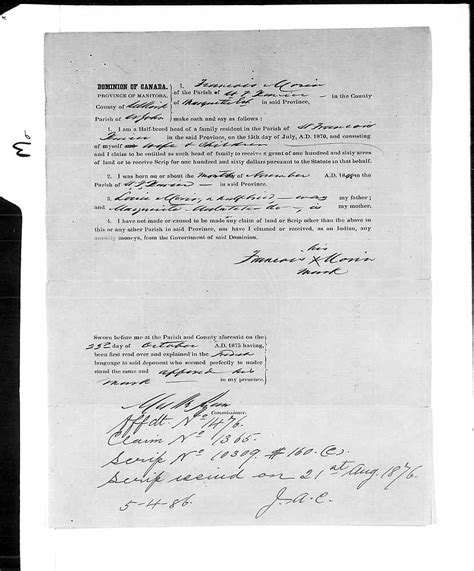 DOMINION OF CANADA.
PROVINCE OF MANITOBA.
County of
Parish of St John
I. Francois Morin
of the Parish of St F. Xavier in the County
of Marquette in said Province,
make oath and say as follows:
1. I am a Half-breed head of a family resident in the Parish of St Francois
Xavier in said Province, on the 15th day of July, A.D. 1870, and consisting
of myself wife & children
and I claim to be entitled as such head of family to receive a grant of one hundred and sixty acres
of land or to receive Scrip for one hundred and sixty dollars pursuant to the Statute in that behalf.
2. I was born on or about the month of November A.D.
Parish of St F. Xavier in said Province.
3. Louis Morin, a half breed was my father;
and Marguerite is my mother.
4. I have not made or caused to be made any claim of land or Scrip other than the above in
this or any other Parish in said Province, nor have I claimed or received, as an Indian, any
annuity moneys, from the Government of said Dominion.
his
Francois X Morin
mark
Sworn before me at the Parish and County aforesaid on the
25th day of October A.D. 1875 having
been first read over and explained in the French
language to said deponent who seemed perfectly to under
stand the same and affixed his
mark in my presence.
Commissioner.
Affdt. No 1476.
Claim No 1365.
Scrip No 10309 $160.(c).
Scrip issued on 21st Aug. 1876.
5-4-86.
J.A.C.